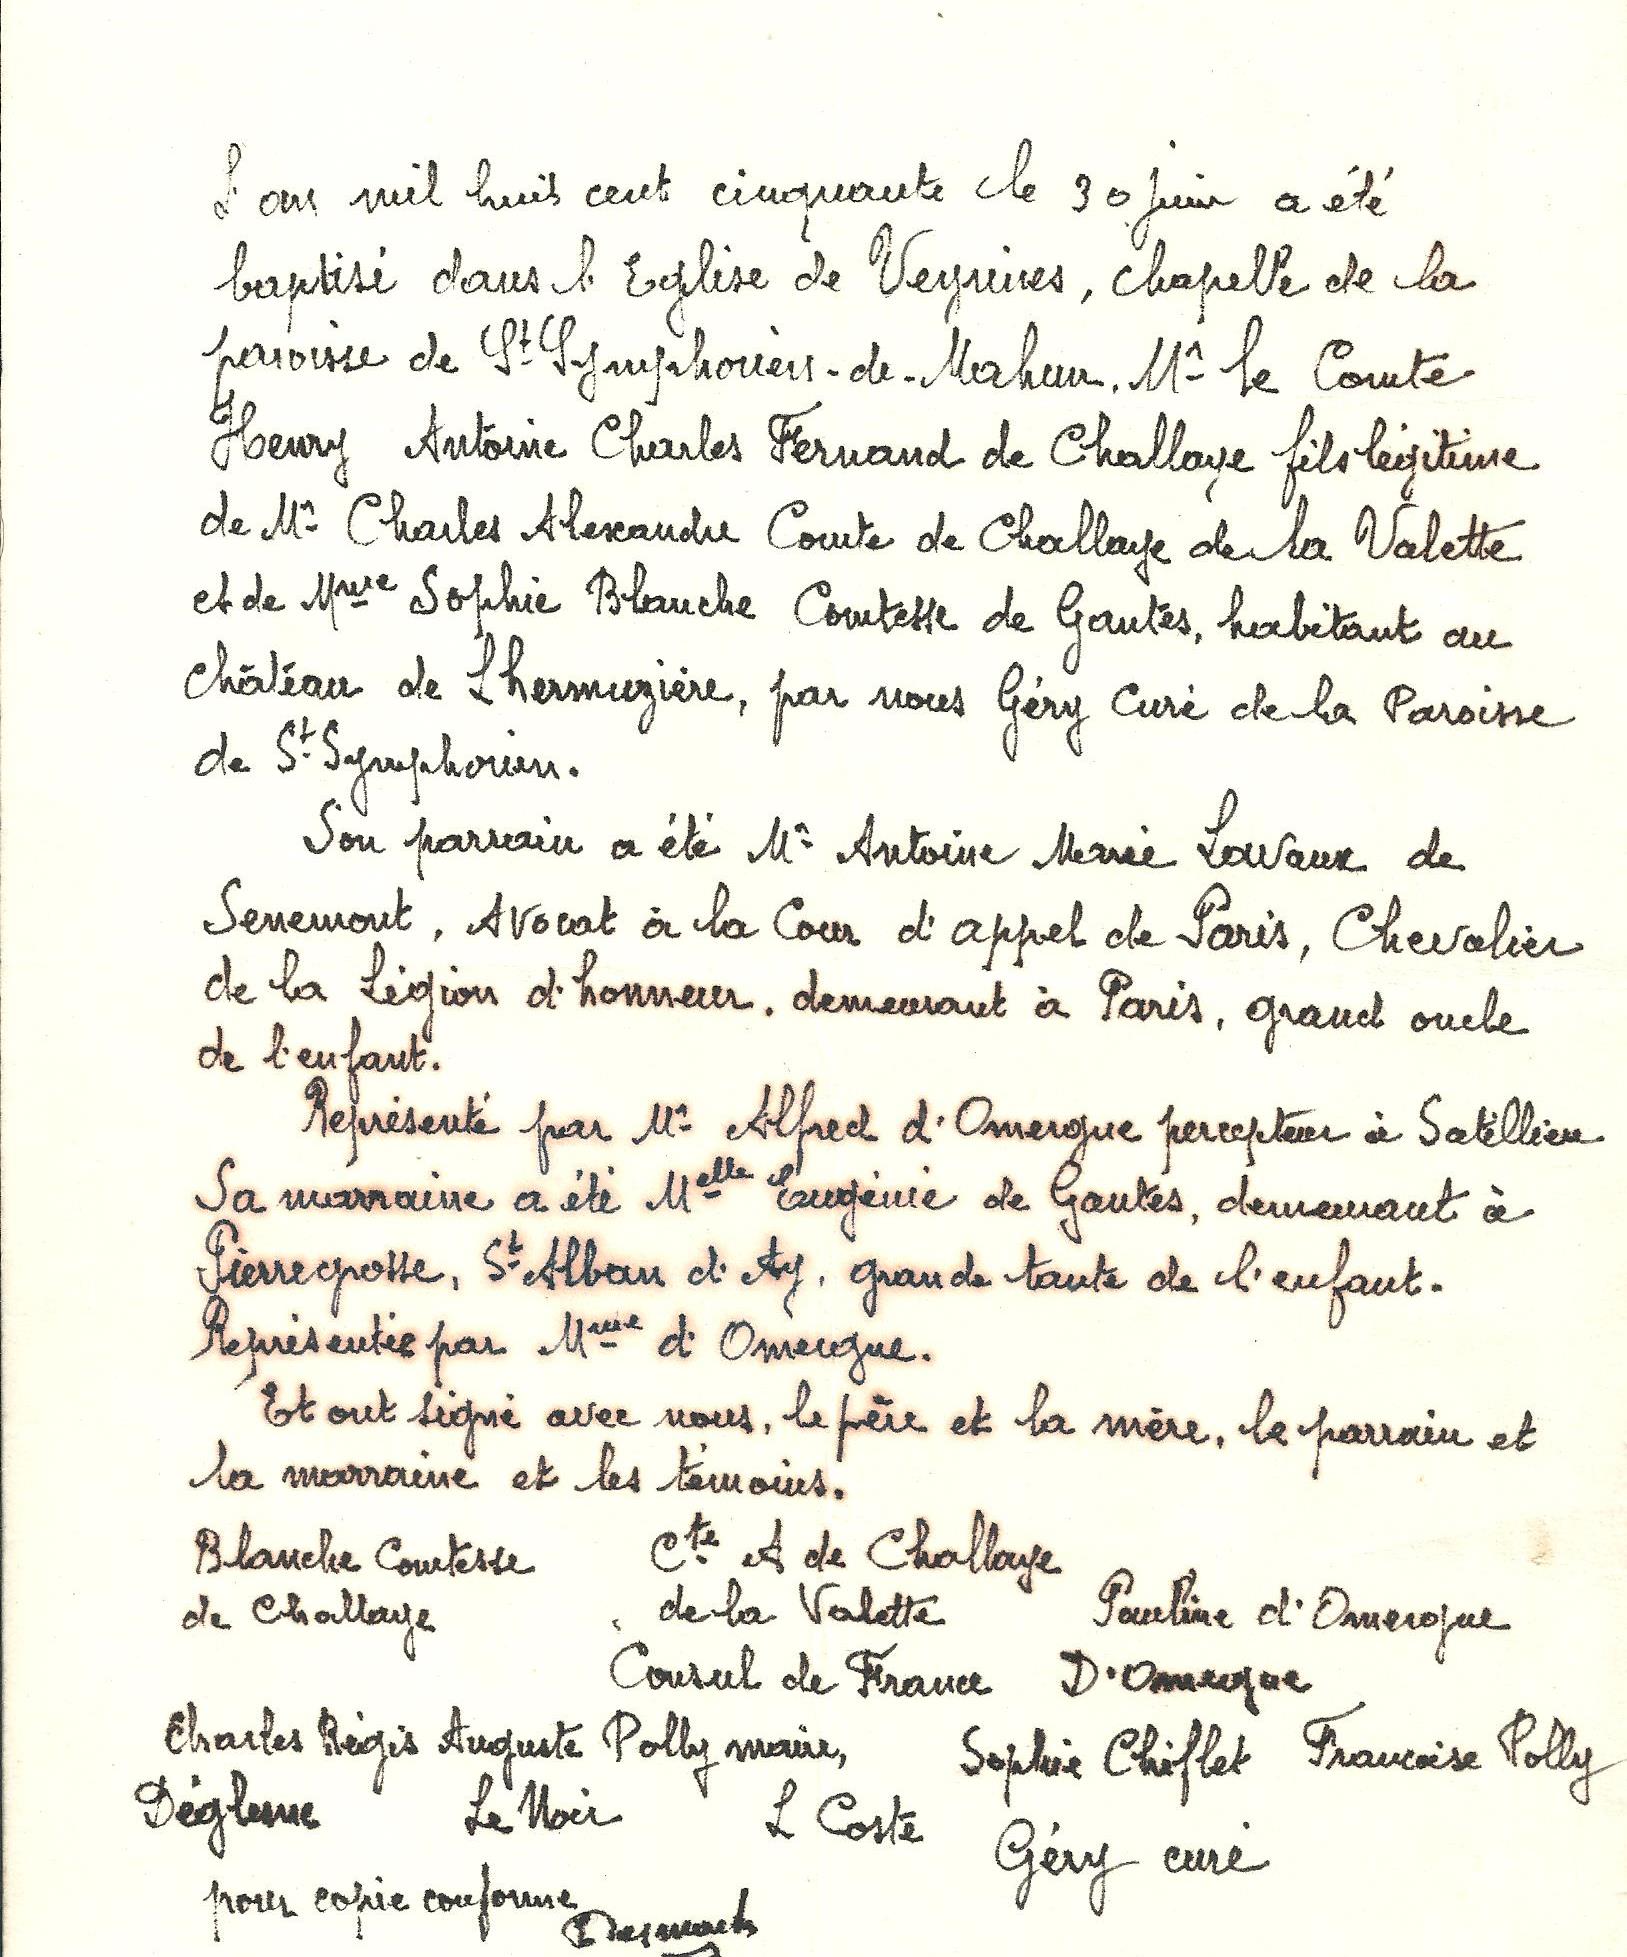 L'an mil huit cent cinquante le 30 juin a été
baptisé dans l'Eglise de Veyrines, chapelle de la
paroisse de St Symphorien-de-Mahun, Mr le Comte
Henry Antoine Charles Fernand de Challaye fils légitime
de Mr Charles Alexandre Comte de Challaye de la Valette
et de Mme Sophie Blanche Comtesse de Gantès, habitant au
château de Lhermuzière, par nous Géry curé de la Paroisse
de St Symphorien.
Son parrain a été Mr Antoine Marie Lavaux de
Senemont, Avocat à la Cour d'appel de Paris, Chevalier
de la Légion d'honneur, demeurant à Paris, grand oncle
de l'enfant.
Représenté par Mr Alfred d'Omergue percepteur à Satillieu
Sa marraine a été Melle Eugénie de Gantès, demeurant à
Pierregrosse, St Alban d'Ay, grande tante de l'enfant.
Représentée par Mme d'Omergue.
Et ont signé avec nous, le père et la mère, le parrain et
la marraine et les témoins.
Blanche Comtesse
de Challaye
Cte A de Challaye
de la Valette
Consul de France
Pauline d'Omergue
D'Omergue
Charles Régis Auguste Polly maire,
Sophie Chiflet
Francoise Polly
Le Noir
L Coste
Géry curé
pour copie conforme